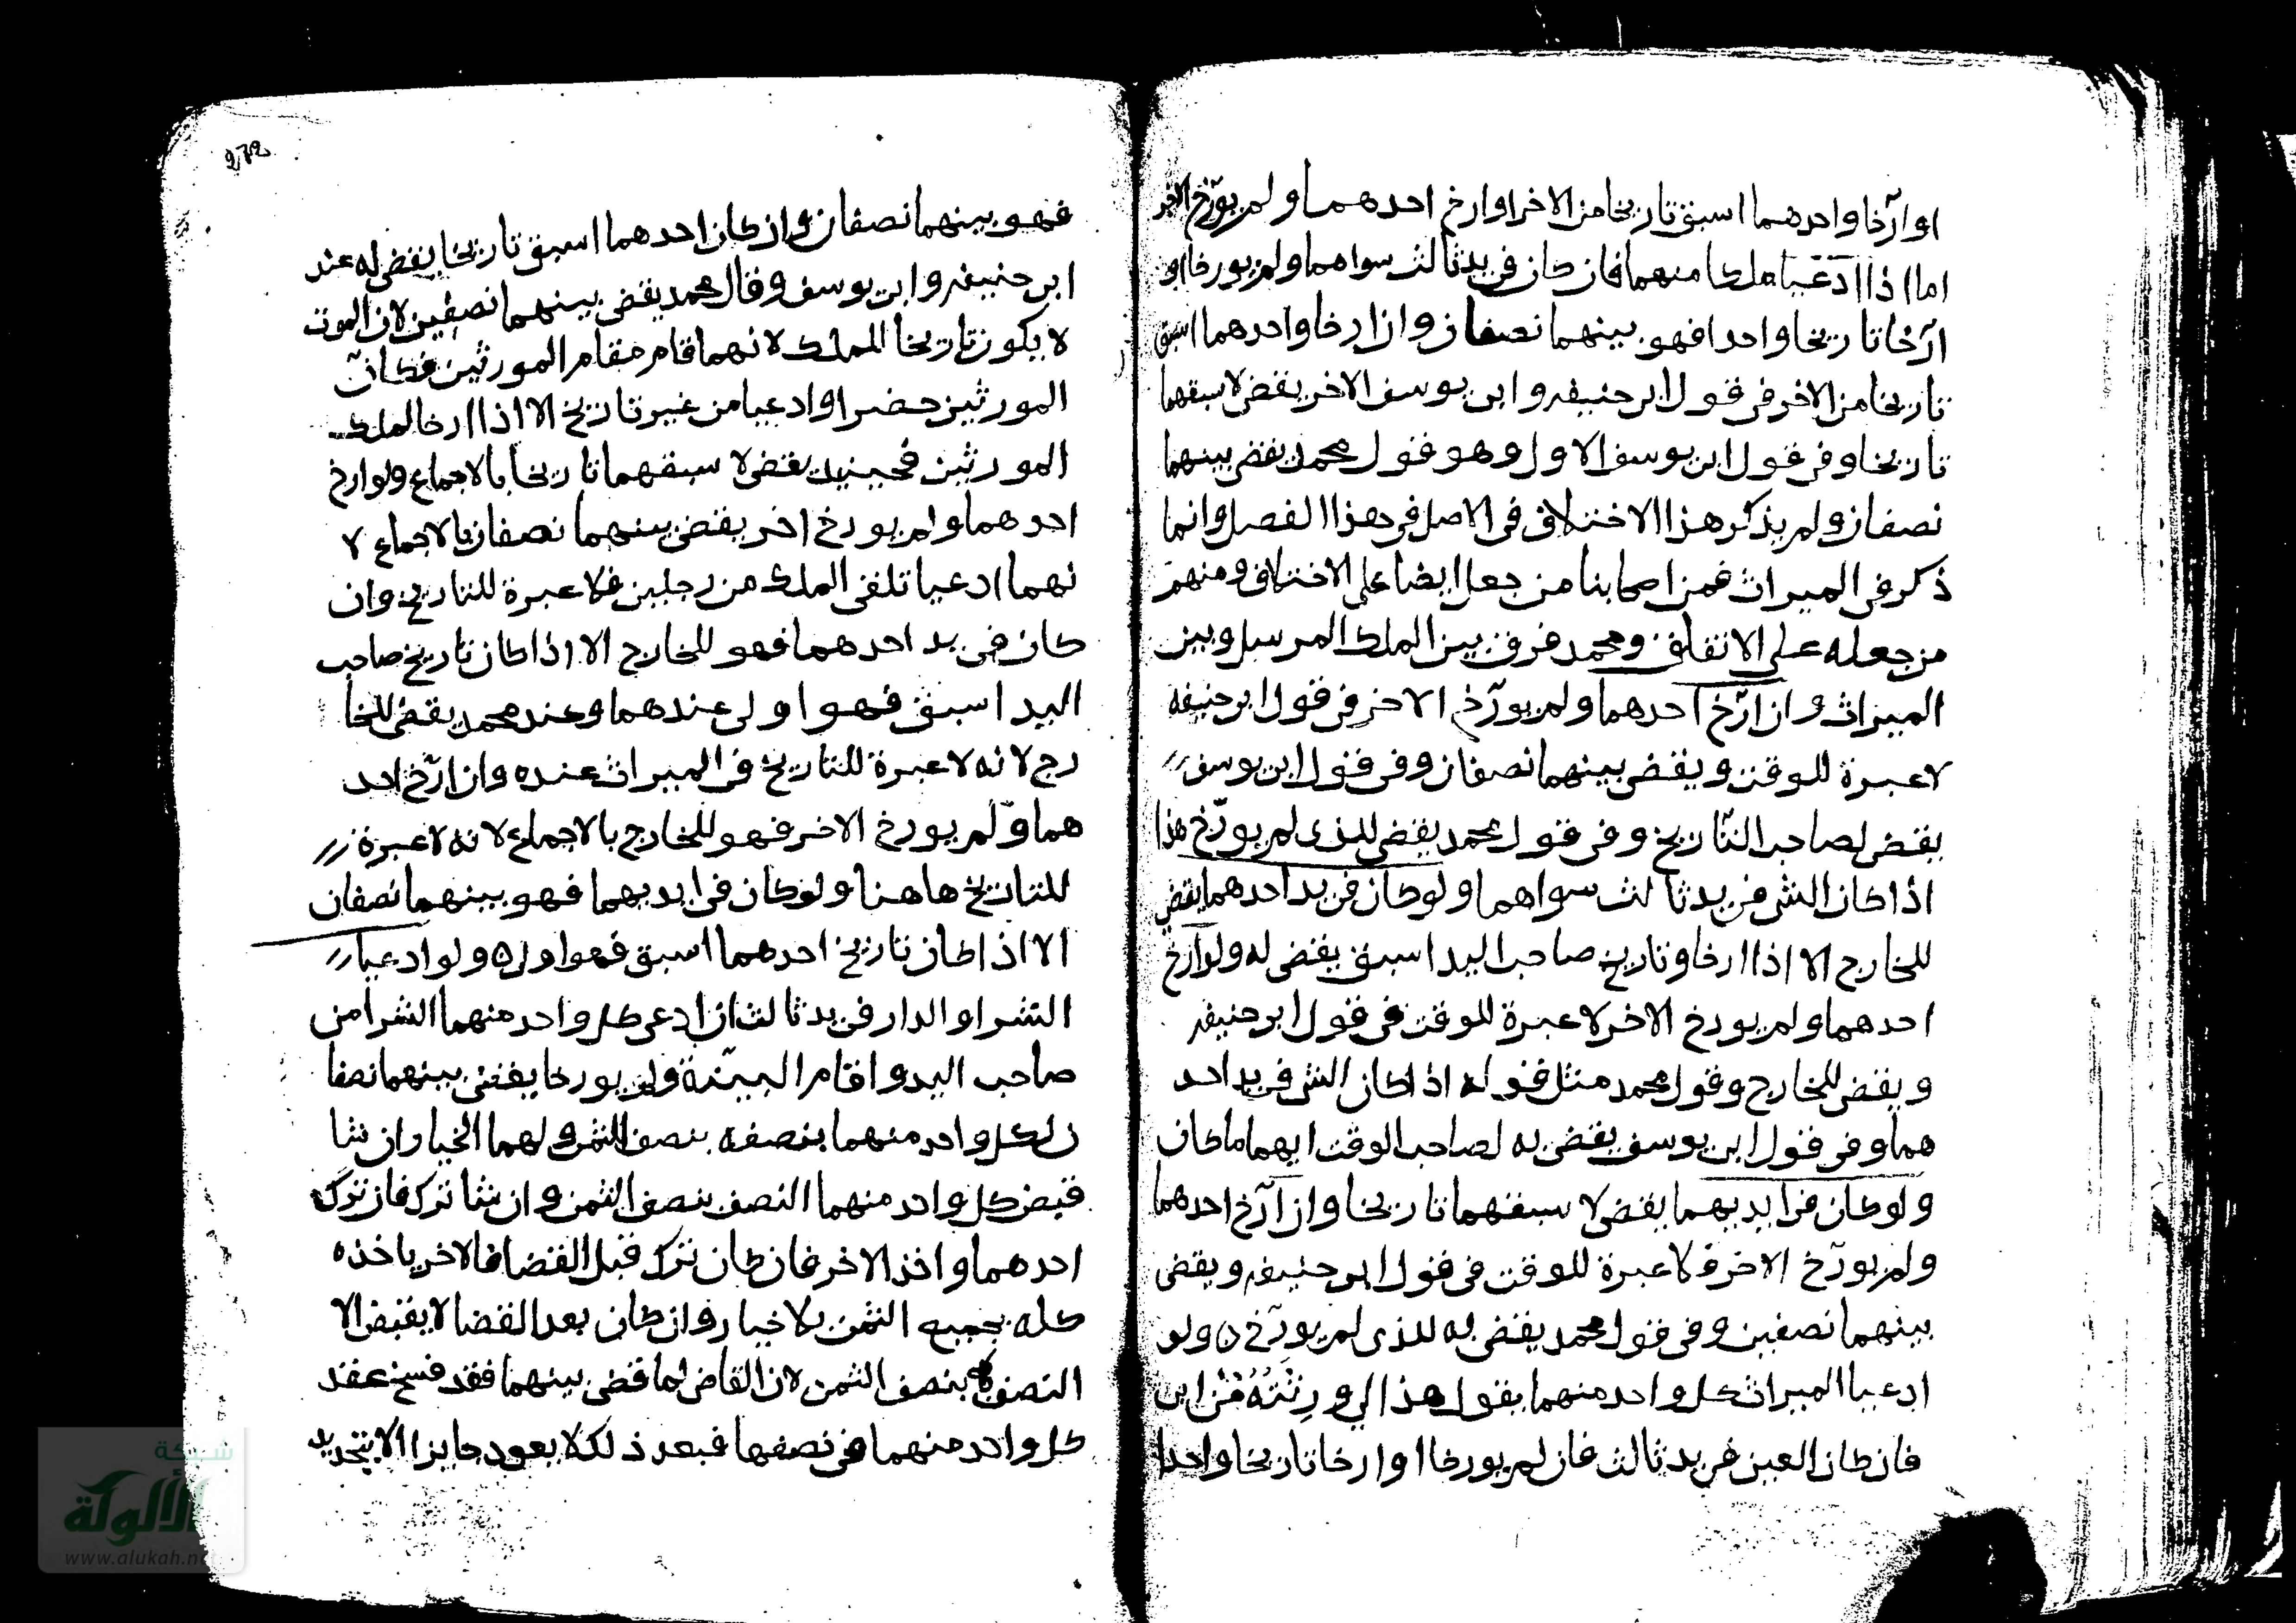 او ارّخا واحدهما اسبق تاريخا من الاخر او ارخ احدهما ولم يورّخ الاخر
اما اذا ادعيا ملكا منهما فان كان في يد ثالث سواهما ولم يورخا او
ارّخا تاريخا واحدا فهو بينهما نصفان وان ارخا واحدهما اسبق
تاريخا من الاخر في قول ابي حنيفه وابي يوسف الاخر يقضي لاسبقهما
تاريخا وفي قول ابي يوسف الاول وهو قول محمد يقضي بينهما
نصفان ولم يذكر هذا الاختلاف في الاصل في هذا الفصل وانما
ذكر في الميراث فمن اصحابنا من جعل ايضا على الاختلاف ومنهم
من جعله على الاتفاق ومحمد فرق بين الملك المرسل وبين
الميراث وان ارّخ احدهما ولم يورّخ الاخر في قول ابي حنيفه
لا عبرة للوقت ويقضي بينهما نصفان وفي قول ابي يوسف
يقضي لصاحب التّاريخ وفي قول محمد يقضي للذي لم يورّخ هذا
اذا كان الشي في يد ثالث سواهما ولو كان في يد احدهما يقضي
للخارج الا اذا ارخا وتاريخ صاحب اليد اسبق يقضي له ولو ارخ
احدهما ولم يورخ الاخر لا عبرة للوقت في قول ابي حنيفه
ويقضي للخارج وقول محمد مثل قوله اذا كان الشي في يد احد
هما وفي قول ابي يوسف يقضي به لصاحب الوقت ايهما ما كان
ولو كان في ايديهما يقضي لاسبقهما تاريخا وان ارّخ احدهما
ولم يورّخ الاخر فلا عبرة للوقت في قول ابي حنيفه ويقضي
بينهما نصفين وفي قول محمد يقضي به للذي لم يورّخ ولو
ادعيا الميراث كل واحد منهما يقول هذا لي وَرِثْتُهُ مِنْ ابي
فان كان العين في يد ثالث فان لم يورخا او ارخا تاريخا واحدا
272
فهو بينهما نصفان وان كان احدهما اسبق تاريخا يقضي له عند
ابي حنيفه وابي يوسف وقال محمد يقضي بينهما نصفين لان الموت
لا يكون تاريخا للملك لانهما قام مقام المورثين فكانّ
المورثين حضرا وادعيا من غير تاريخ الا اذا ارخا لملك
المورثين فحينيذ يقضي لاسبقهما تاريخا بالاجماع ولو ارخ
احدهما ولم يورخ اخر يقضي بينهما نصفان بالاجماع لا
نهما ادعيا تلقي الملك من رجلين فلا عبرة للتاريخ وان
كان في يد احدهما فهو للخارج الا اذا كان تاريخ صاحب
اليد اسبق فهو اولى عندهما وعند محمد يقضي للخا
رج لانه لا عبرة للتاريخ في الميراث عنده وان ارّخ احد
هما ولم يورخ الاخر فهو للخارج بالاجماع لانه لا عبرة
للتاريخ هاهنا ولو كان في ايديهما فهو بينهما نصفان
الا اذا كان تاريخ احدهما اسبق فهو اولى ولو ادعيا
الشرا والدار في يد ثالث ان ادعى كل واحد منهما الشرا من
صاحب اليد واقام البيّنة ولم يورخا يقضي بينهما نصفا
ن لكل واحد منهما بنصفه بنصف الثمن ولهما الخيار ان شا
قبض كل واحد منهما النصف بنصف الثمن وان شا ترك فان ترك
احدهما واخذ الاخر فان كان ترك قبل القضا فالاخر ياخذه
كله بجميع الثمن بلا خيار وان كان بعد القضا لا يقبض الا
النصف بنصف الثمن لان القاضي لما قضى بينهما فقد فسخ عقد
كل واحد منهما في نصفها فبعد ذلك لا يعود جايزا الا بتجديد
شبكة
الألوكة
www.alukah.net